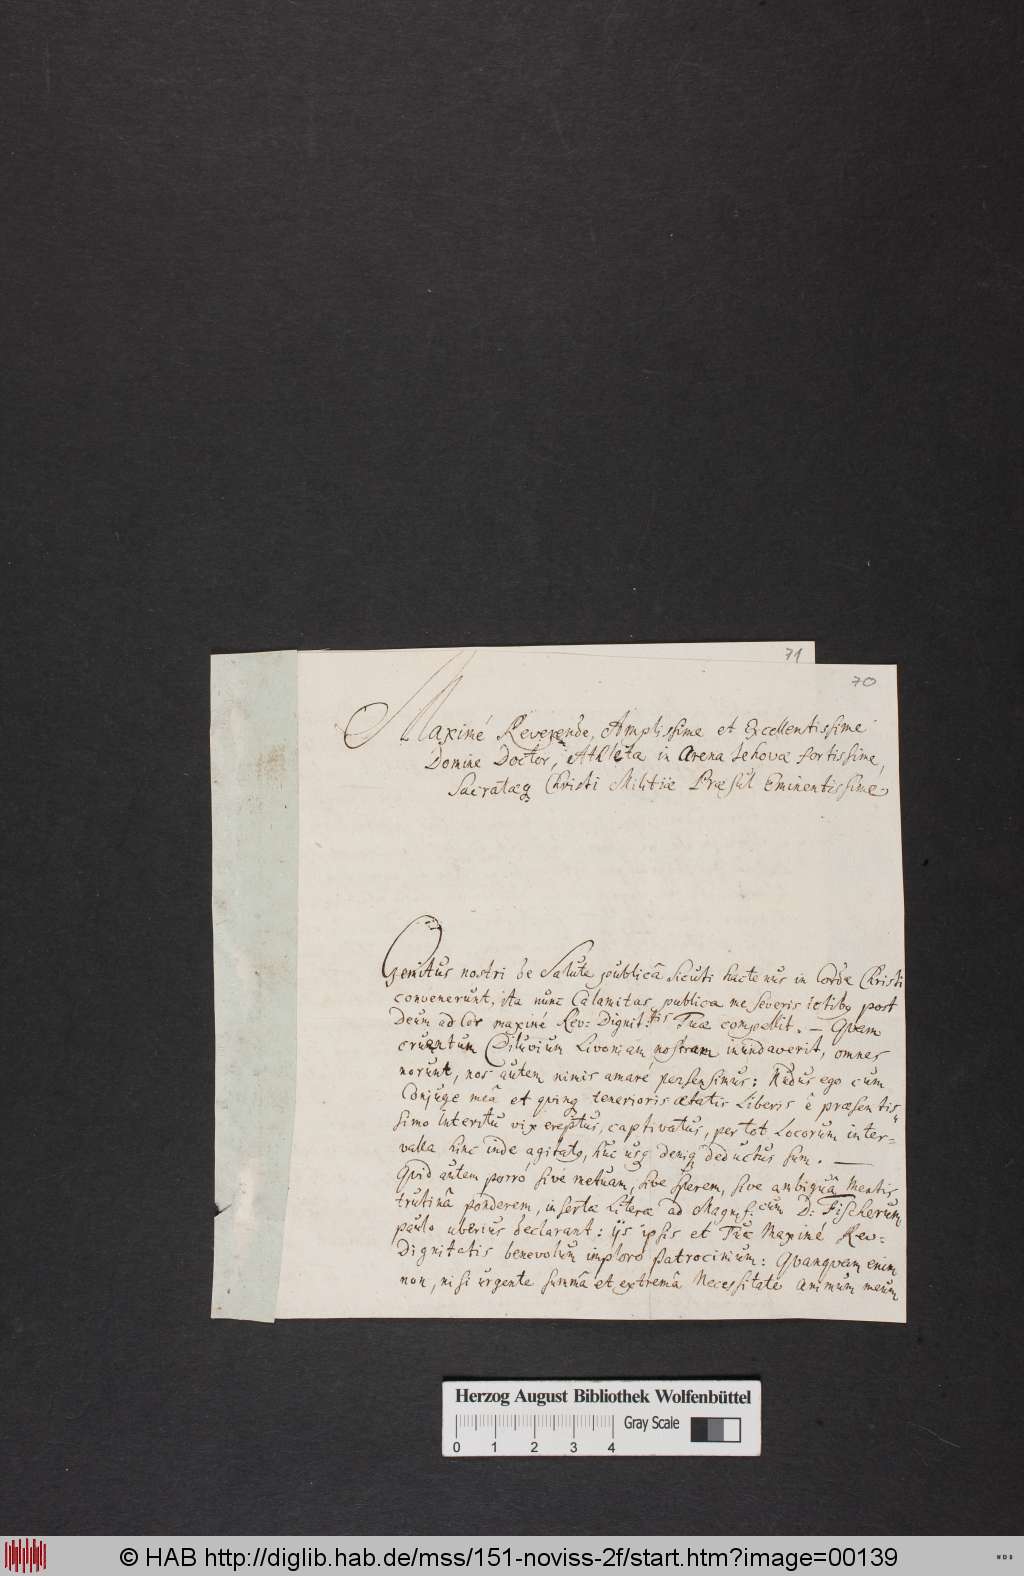 71
70
Maximé Reverende, Amplissime et Excellentissime
Domine Doctor, Athleta in Arena Jehovæ fortissime,
Sacratæq Christi Militiæ Præsul Eminentissime
Gemitus nostri de Salute publicâ sicuti hactenus in Corde Christi
convenerunt, ita nunc Calamitas publica me severis ictibq post
Deum ad Cor maximé Rev: Dignit:tis Tuæ compellit. — Qvam
cruentum Diluvium Livoniam nostram inundaverit, omnes
norunt, nos autem nimis amaré persensimus: Nudus ego cum
Conjuge meâ et qvinq tenerioris ætatis Liberis è præsentis,,
simo Interitu vix ereptus, captivatus, per tot Locorum inter-
valla hinc inde agitatq, huc usq deniq deductus sum. —
Qvid autem porró sivé metuam, sive sperem, sive ambiguâ Mentis
trutinâ ponderem, insertæ Literæ ad Magnif:cum D: Fischerum
paulo uberius declarant: ijs ipsis et Tuæ Maximé Rev-
Dignitatis benevolum imploro Patrocinium: Qvanqvam enim
non, nisi urgente summâ et extremâ Necessitate animum meum
Herzog August Bibliothek Wolfenbüttel
Gray Scale
0 1 2 3 4
© HAB http://diglib.hab.de/mss/151-noviss-2f/start.htm?image=00139